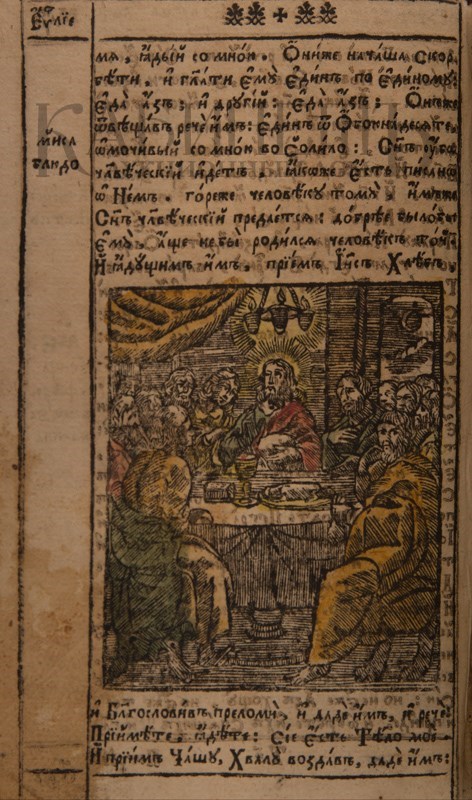 Еѵ҃лїе
мѧ, ꙗ҆ды́й со мно́ю. Ѻ҆ни́же нача́ша скор
бѣ́ти, и҆ гл҃а́ти є҆мꙋ̀ є҆ди́нъ по є҆ди́номꙋ:
є҆да̀ а҆́зъ; и҆ дрꙋгі́й: є҆да̀ а҆́зъ; Ѻ҆н
ѿвѣща́въ речѐ и҆̀мъ: є҆ди́нъ ѿ ѻ҆боюна́десѧте,
ми́са
блю́до
ѡ҆мочи́вый со мно́ю во соли́ло: Сн҃ъ
чл҃вѣ́ческїй и҆де́тъ, ꙗ҆́коже є҆́сть пи́сано
ѡ҆ Не́мъ. го́реже человѣ́кꙋ томꙋ̀, и҆́мже
Сн҃ъ чл҃вѣ́ческїй преда́етсѧ: добрѣ́е бы́ло бы
є҆мꙋ̀, а҆́ще не бы̀ роди́лсѧ человѣ́къ то́й.
И҆ ꙗ҆дꙋ́щимъ и҆̀мъ, прїе́мъ І҆и҃съ Хлѣ́бъ,
и҆ Благослови́въ преломѝ, и҆ дадѐ и҆̀мъ, и҆ речѐ
Прїими́те, ꙗ҆ди́те: Сїѐ є҆́сть Тѣ́ло моѐ
И҆ прїи́мъ Ча́шꙋ, Хвалꙋ̀ возда́въ, дадѐ и҆̀мъ: